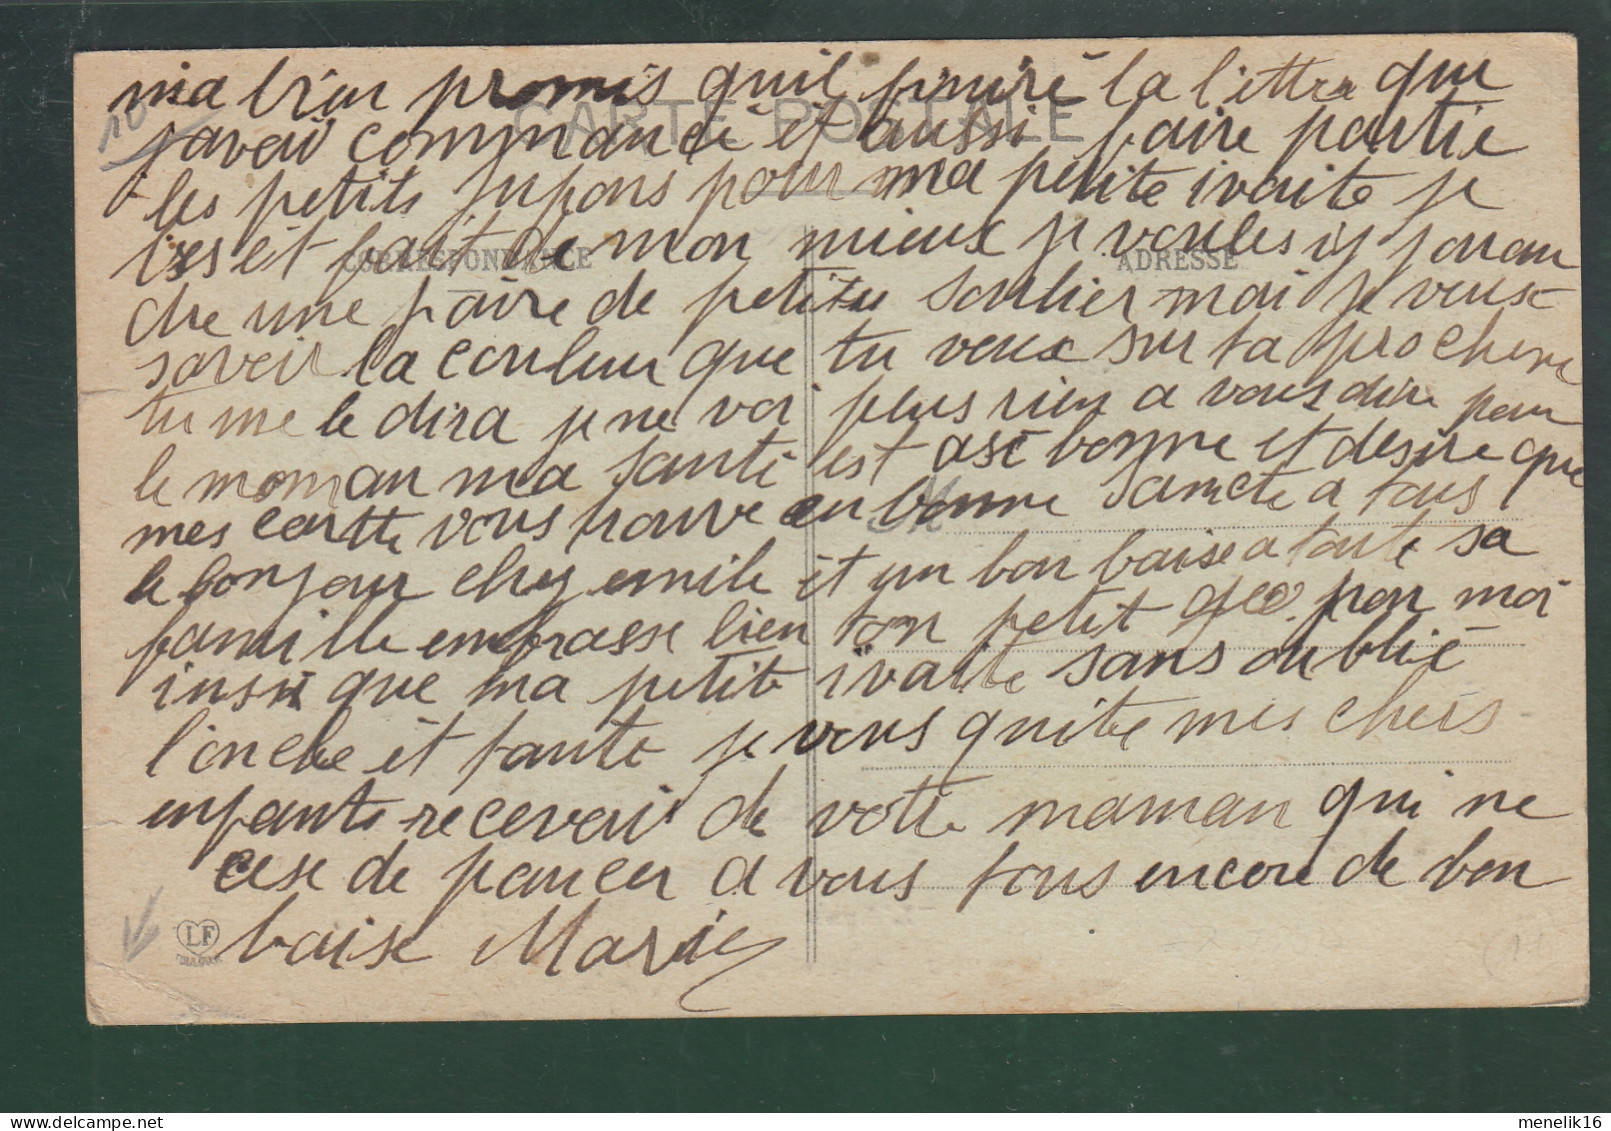 ma bien promis quil finiré la lettre que
CARTE POSTALE
10
javai commancé et aussi faire partie
les petits jupons pour ma petite ivaite je
CORRESPONDANCE
ADRESSE
et fait de mon mieux je voules i jouan
dre une paire de petite soulier mai je veus
savoir la couleur que tu veux sur ta prochene
tu me le dira je ne voi plus rien a vous dire pour
le moman ma santé est asé bonne et desire que
mes cartte vous trouve en bonne sancte a tous
le bonjour chez emile et un bon baise a toute sa
famille embrasse bien ton petit geo pour moi
insi que ma petite ivaite sans oublié
l'oncle et tante je vous quitte mes chers
enfants recevai de votre maman qui ne
cese de pancer a vous tous encore de bon
baise Marie
LF
TOULOUSE
menelik16